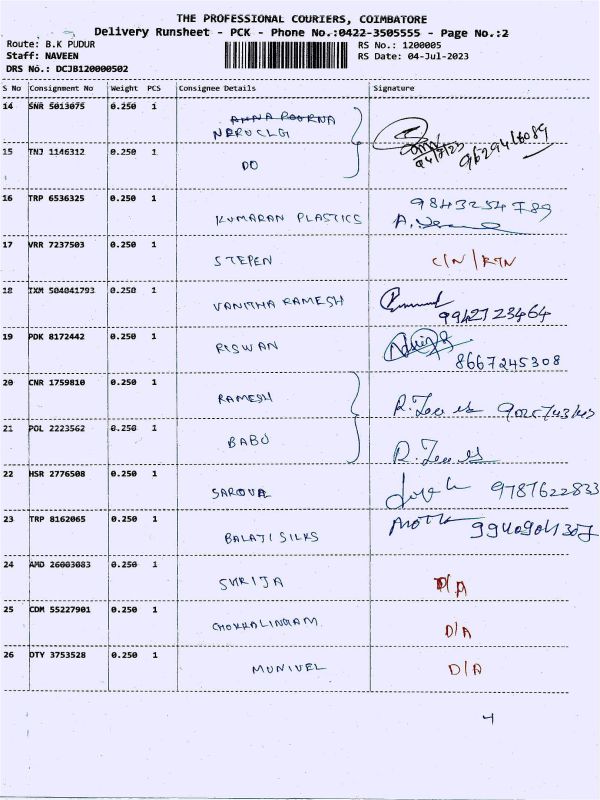 THE PROFESSIONAL COURIERS, COIMBATORE
Delivery Runsheet - PCK - Phone No.:0422-3505555 - Page No.:2
Route: B.K PUDUR RS No.: 1200005
Staff: NAVEEN RS Date: 04-Jul-2023
DRS No.: DCJB120000502
S No Consignment No Weight PCS Consignee Details Signature
14 SNR 5013075 0.250 1 ANNA POORNA
NERUCLG
15 TNJ 1146312 0.250 1 DO 9629416089
16 TRP 6536325 0.250 1 KUMARAN PLASTICS 9843254789
17 VRR 7237503 0.250 1 STEPEN C/N/RTN
18 IXM 504041793 0.250 1 VANITHA RAMESH 9942723464
19 PDK 8172442 0.250 1 RISWAN 8667245308
20 CNR 1759810 0.250 1 RAMESH
21 POL 2223562 0.250 1 BABU
22 HSR 2776508 0.250 1 SAROVA 9787622833
23 TRP 8162065 0.250 1 BALAJI SILKS
24 AMD 26003083 0.250 1 SHRIJA D/A
25 CDM 55227901 0.250 1 CHOKKALINGAM D/A
26 DTY 3753528 0.250 1 MUNIVEL D/A
4